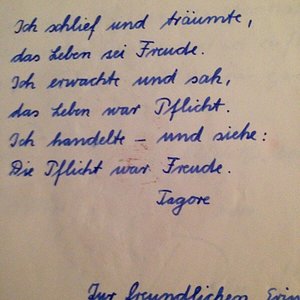 Ich schlief und träumte,
das Leben sei Freude.
Ich erwachte und sah,
das Leben war Pflicht.
Ich handelte – und siehe:
Die Pflicht war Freude.
Tagore
Zur freundlichen